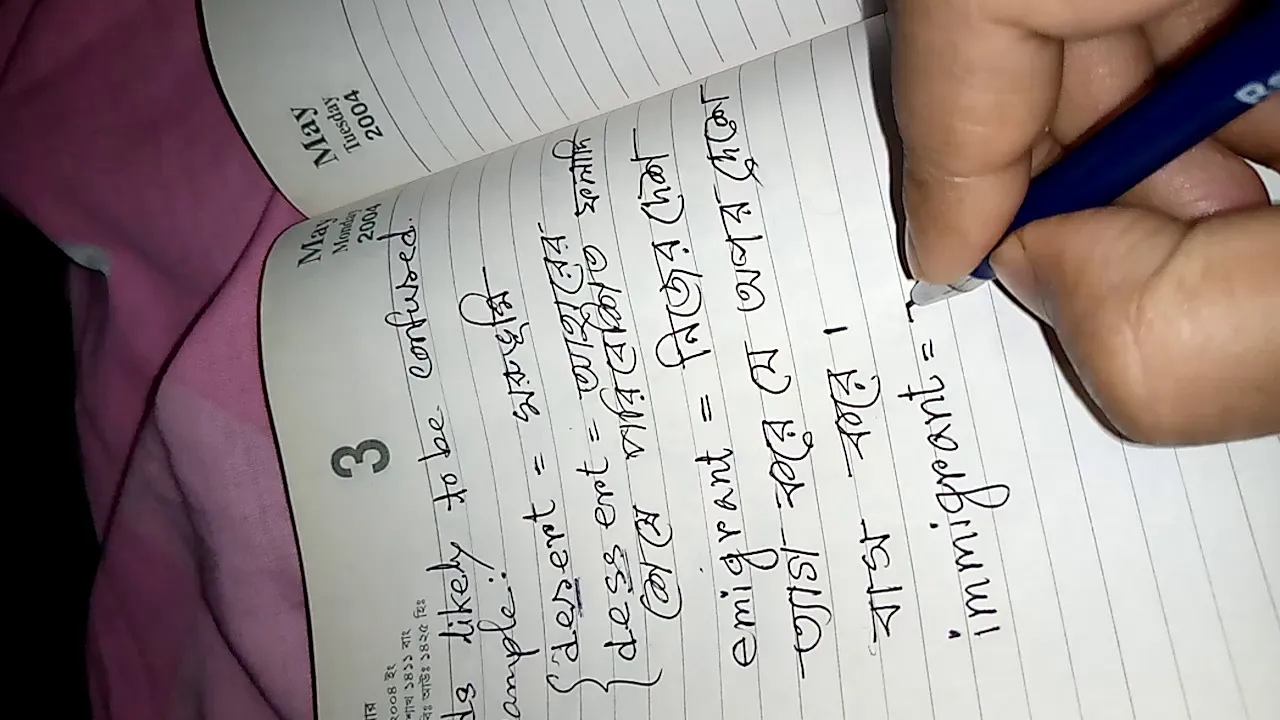 May
Tuesday
2004
3
May
Monday
2004
২০০৪ ইং
১৪১১ বাং
১৪২৫ হিঃ
ds likely to be confused.
ample:
desert = মরুভূমি
dessert = আহারের
শেষে পরিবেশিত ফলাদি
emigrant = নিজের দেশ
ত্যাগ করে যে অপর দেশে
বাস করে।
immigrant =